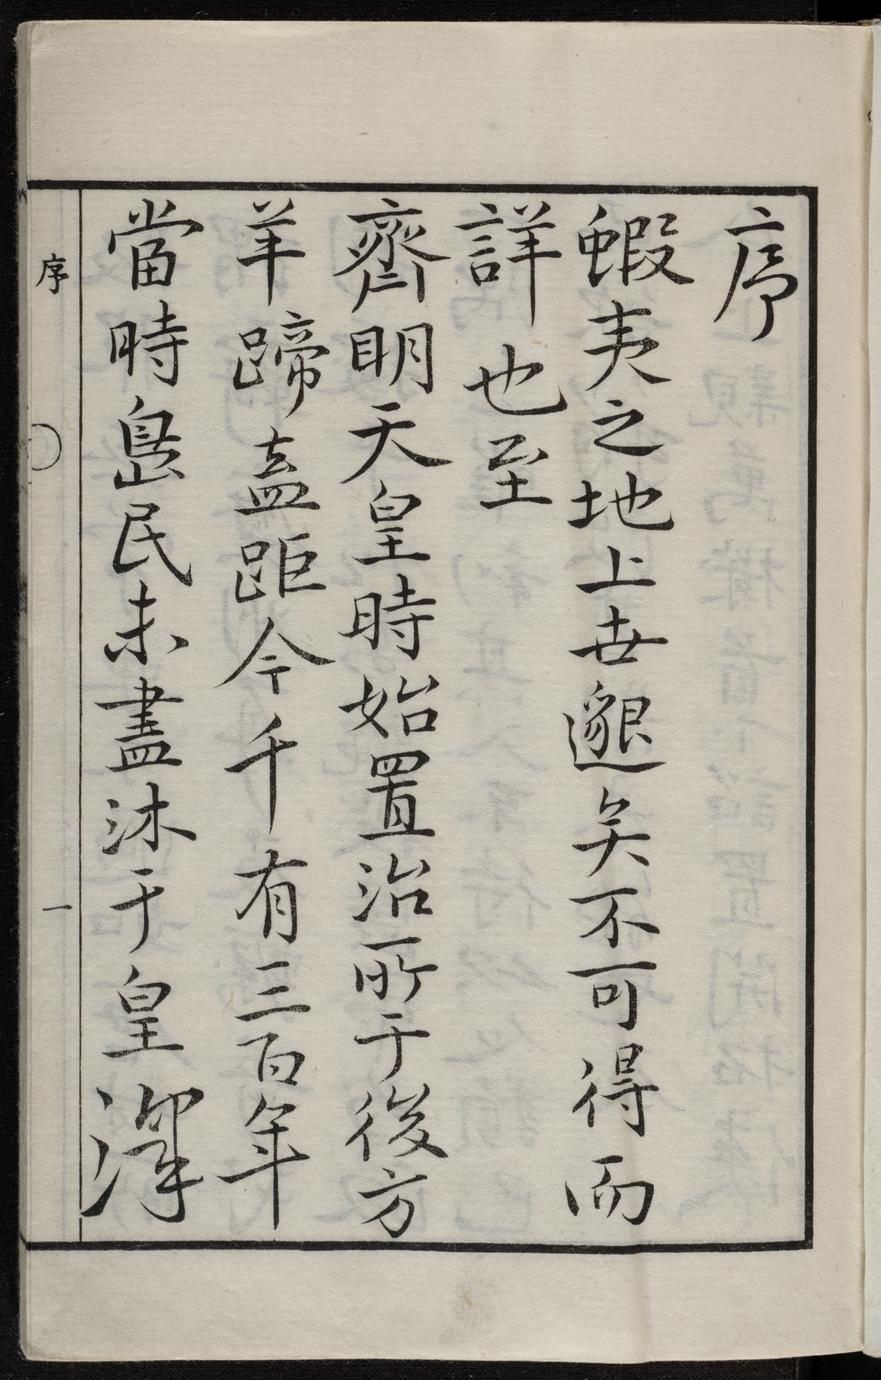 序
蝦夷之地上世邈矣不可得而
詳也至
齊明天皇時始置治所于後方
羊蹄蓋距今千有三百年
當時島民未盡沐于皇澤
序
一